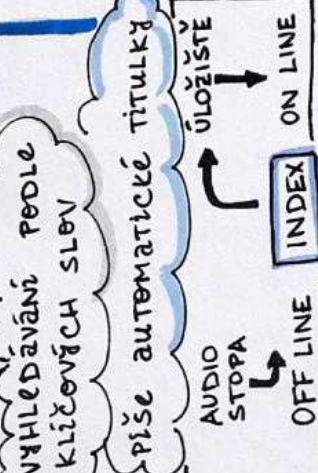 VYHLEDÁVÁNÍ PODLE
KLÍČOVÝCH SLOV
PÍŠE AUTOMATICKÉ TITULKY
AUDIO
STOPA
ÚLOŽIŠTĚ
OFF LINE
INDEX
ON LINE